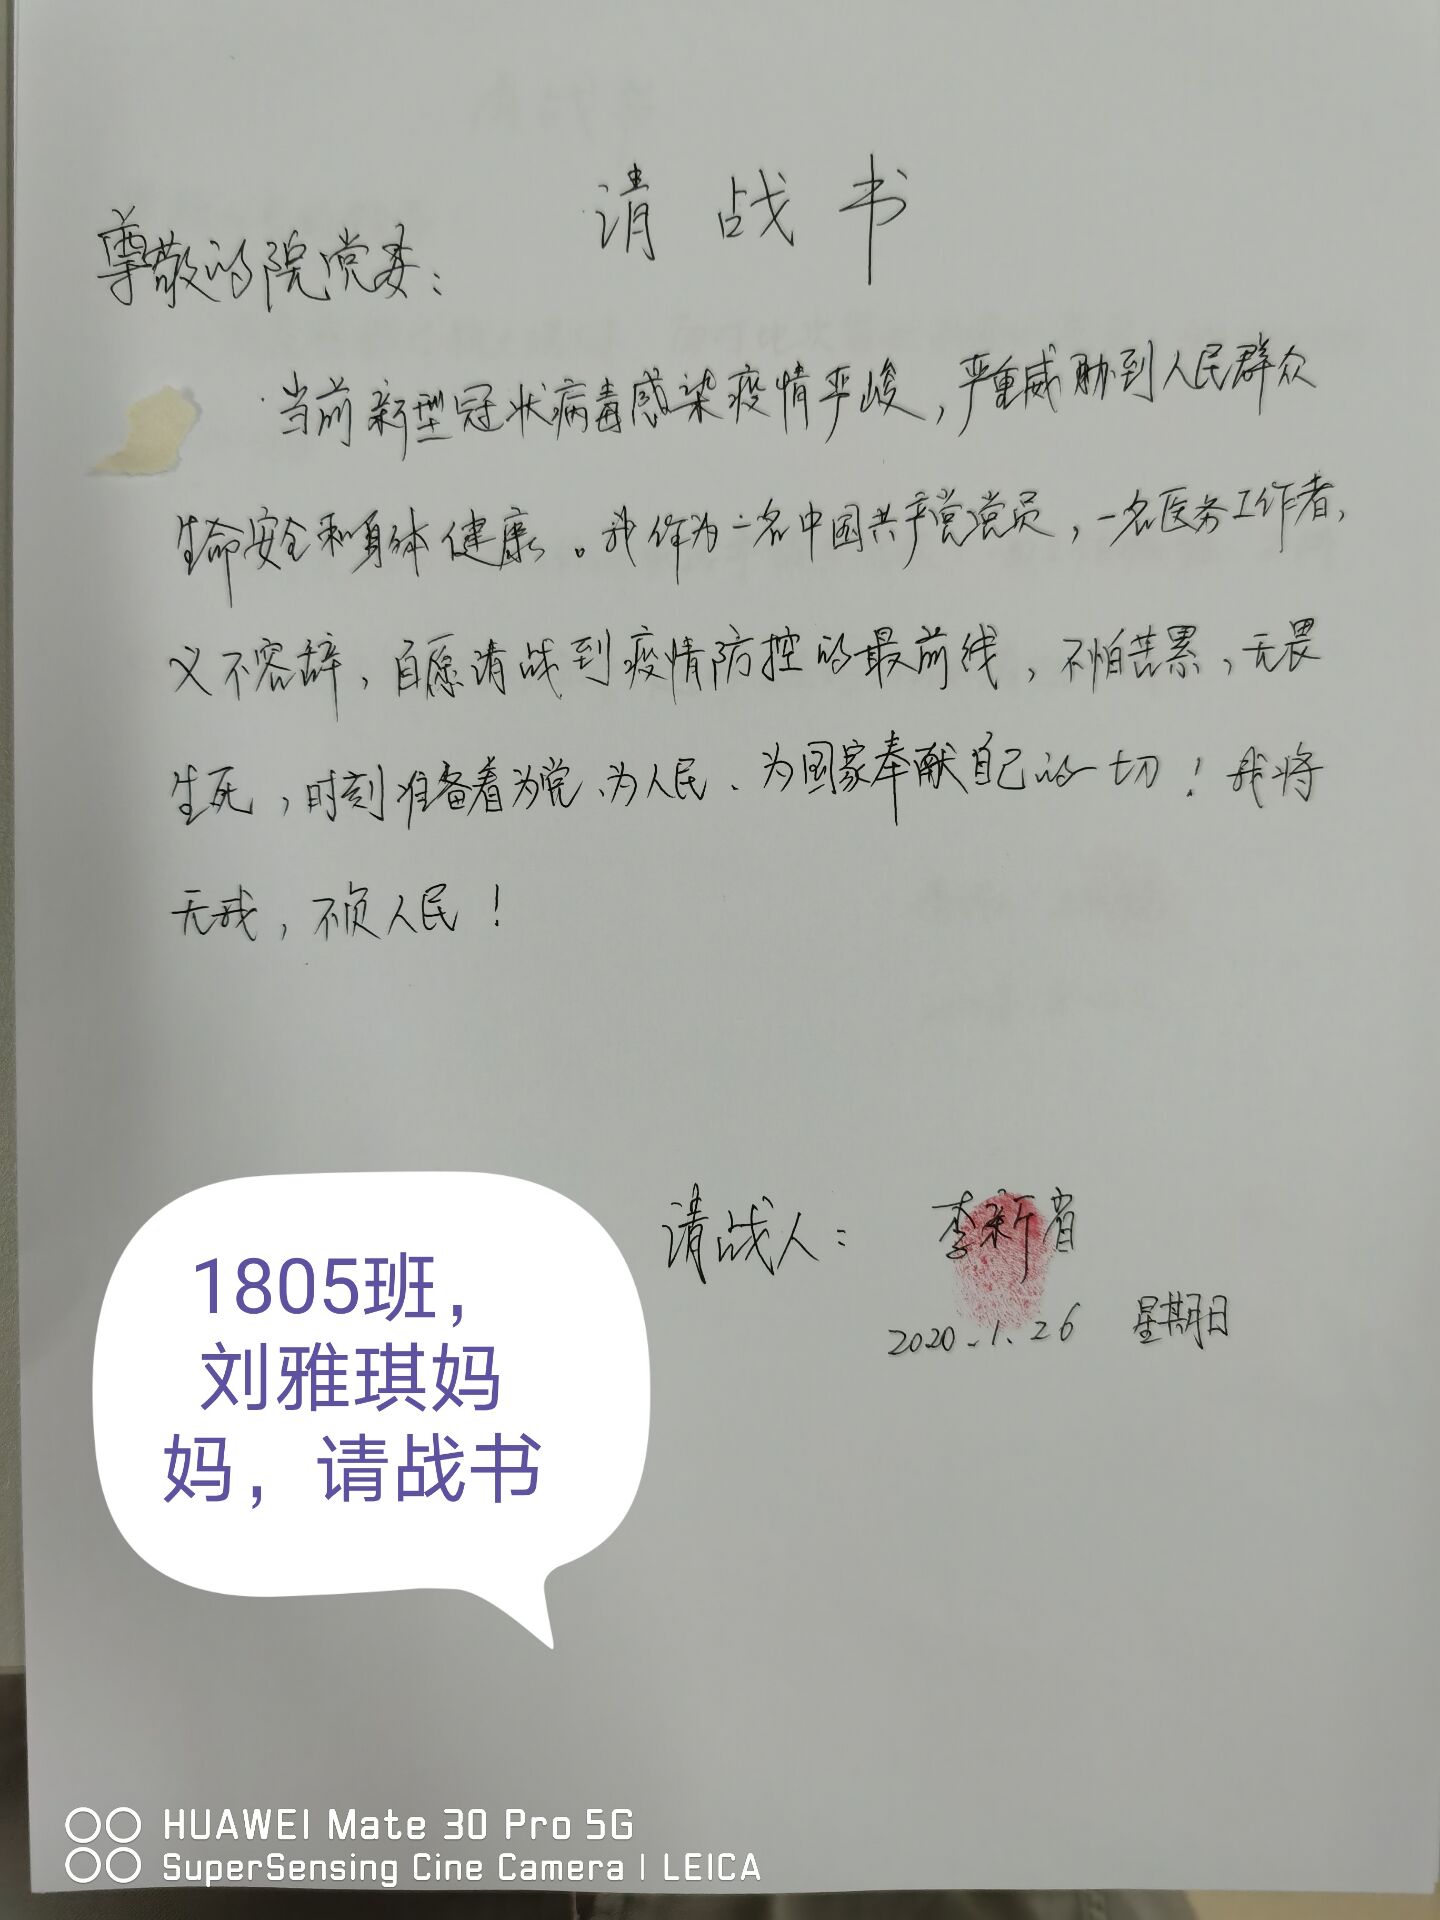 请战书
尊敬的院党委：
当前新型冠状病毒感染疫情严峻，严重威胁到人民群众
生命安全和身体健康。我作为一名中国共产党党员，一名医务工作者，
义不容辞，自愿请战到疫情防控的最前线，不怕苦累，无畏
生死，时刻准备着为党、为人民、为国家奉献自己的一切！我将
无我，不负人民！
请战人：李新省
2020.1.26 星期日
1805班，
刘雅琪妈
妈，请战书
HUAWEI Mate 30 Pro 5G
SuperSensing Cine Camera | LEICA